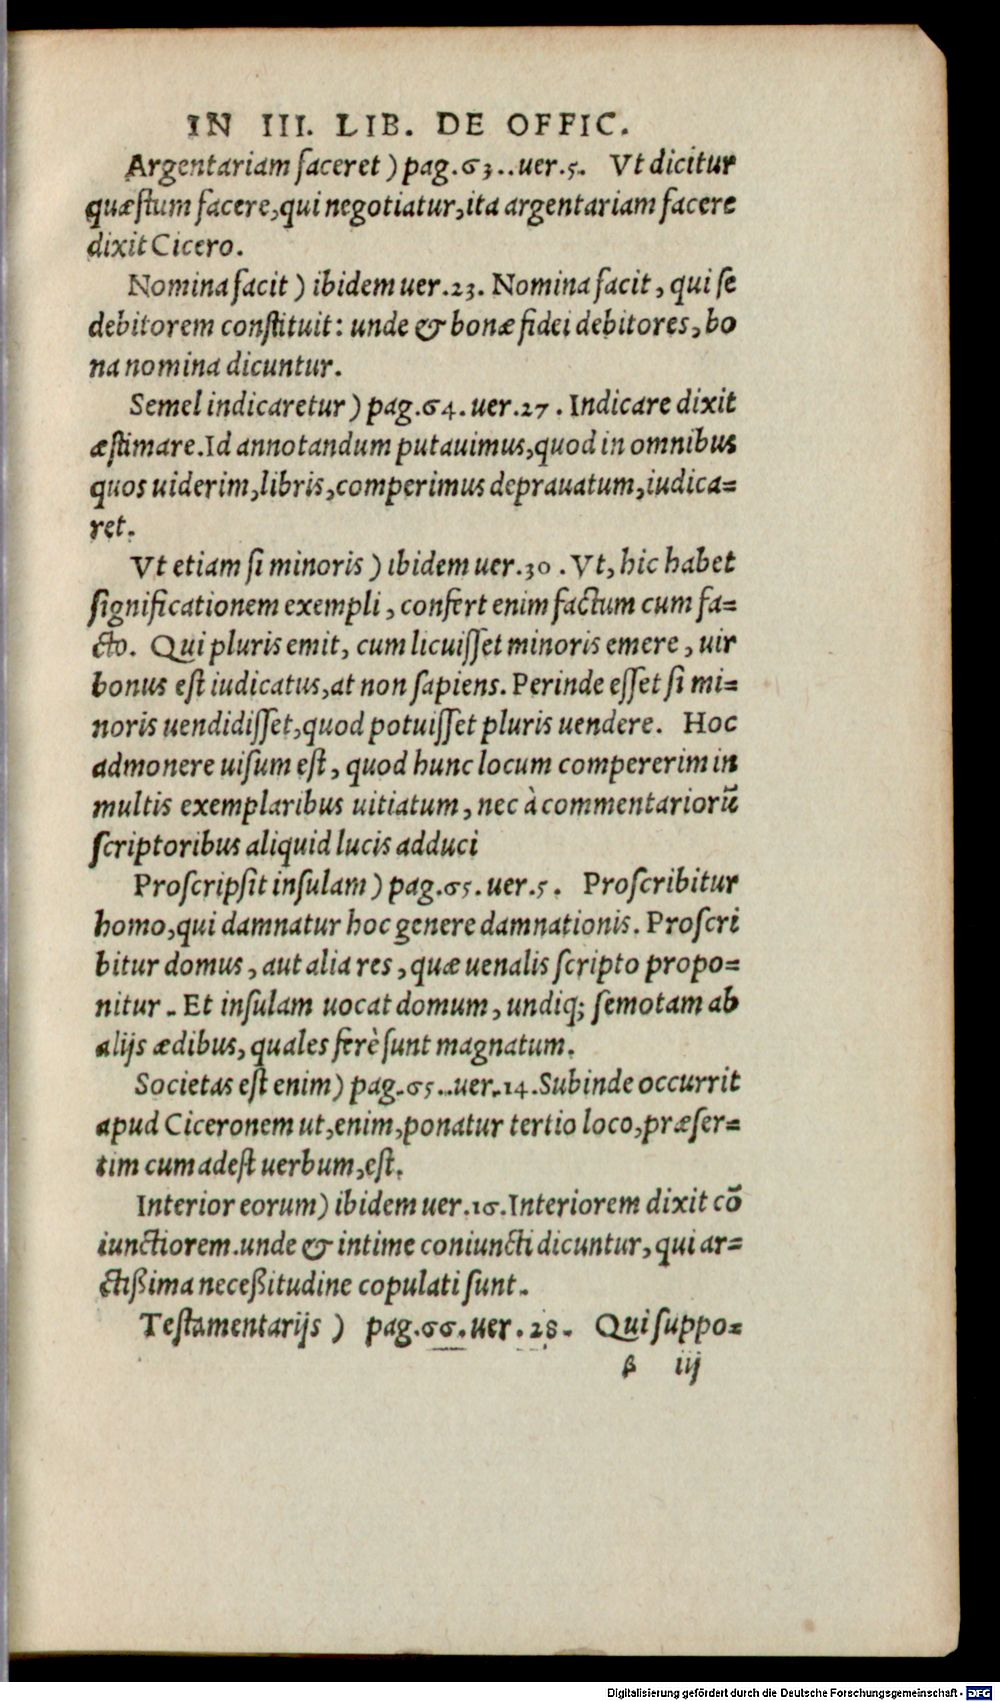 IN III. LIB. DE OFFIC.
Argentariam faceret ) pag.63..uer.5. Vt dicitur
quæſtum facere,qui negotiatur,ita argentariam facere
dixit Cicero.
Nomina facit ) ibidem uer.23. Nomina facit, qui ſe
debitorem conſtituit: unde & bonæ fidei debitores, bo
na nomina dicuntur.
Semel indicaretur ) pag.64. uer.27. Indicare dixit
æſtimare.Id annotandum putauimus,quod in omnibus
quos uiderim,libris,comperimus deprauatum,iudica=
ret.
Vt etiam ſi minoris ) ibidem uer.30. Vt, hic habet
ſignificationem exempli, confert enim factum cum fa=
cto. Qui pluris emit, cum licuiſſet minoris emere, uir
bonus eſt iudicatus,at non ſapiens. Perinde eſſet ſi mi=
noris uendidiſſet,quod potuiſſet pluris uendere. Hoc
admonere uiſum eſt, quod hunc locum compererim in
multis exemplaribus uitiatum, nec à commentariorũ
ſcriptoribus aliquid lucis adduci
Proſcripſit inſulam ) pag.65.uer.5. Proſcribitur
homo,qui damnatur hoc genere damnationis. Proſcri
bitur domus, aut alia res, quæ uenalis ſcripto propo=
nitur. Et inſulam uocat domum, undiq; ſemotam ab
alijs ædibus, quales ferè ſunt magnatum.
Societas eſt enim) pag.65..uer.14.Subinde occurrit
apud Ciceronem ut,enim,ponatur tertio loco,præſer=
tim cum adeſt uerbum,eſt.
Interior eorum) ibidem uer.16.Interiorem dixit cõ
iunctiorem.unde & intime coniuncti dicuntur, qui ar=
ctißima neceßitudine copulati ſunt.
Teſtamentarijs ) pag.66.uer.28. Qui ſuppo=
β iij
Digitalisierung gefördert durch die Deutsche Forschungsgemeinschaft - DFG